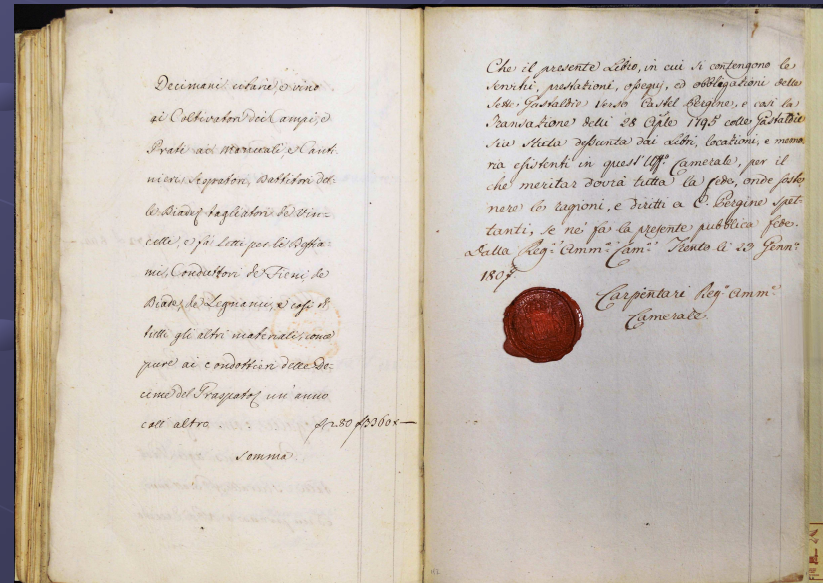 Decimani, cibarie, e vino
ai Coltivatori dei Campi, e
Prati ai Manuali, e Canti-
nieri, Segatori, Battitori del-
le Biade, tagliatori de Vin-
celle, e fa Letti per le Bestia-
mi, Conduttori de Fieni, de
Biade, de Legnami, e così di
tutti gli altri materiali, come
pure ai condottieri delle De-
cime del Traspato un'anno
coll'altro f 280 f 3360 x —
Somma
Che il presente Libro, in cui si contengono le
servitù, prestazioni, ossequj, ed obbligazioni delle
Sette Gastaldie verso Castel Pergine, e così la
Transazione delli 28 Aple 1795 colle Gastaldie
sia stata desunta dai Libri, locazioni, e memo
ria esistenti in quest'Uffo Camerale, per il
che meritar dovrà tutta la fede, onde soste
nere le ragioni, e diritti a C. Pergine spet-
tanti, se ne fa la presente pubblica fede.
Dalla Rega Ammne Came Trento li 29 Gennº
180
Carpentari Regº Ammre
Camerale.